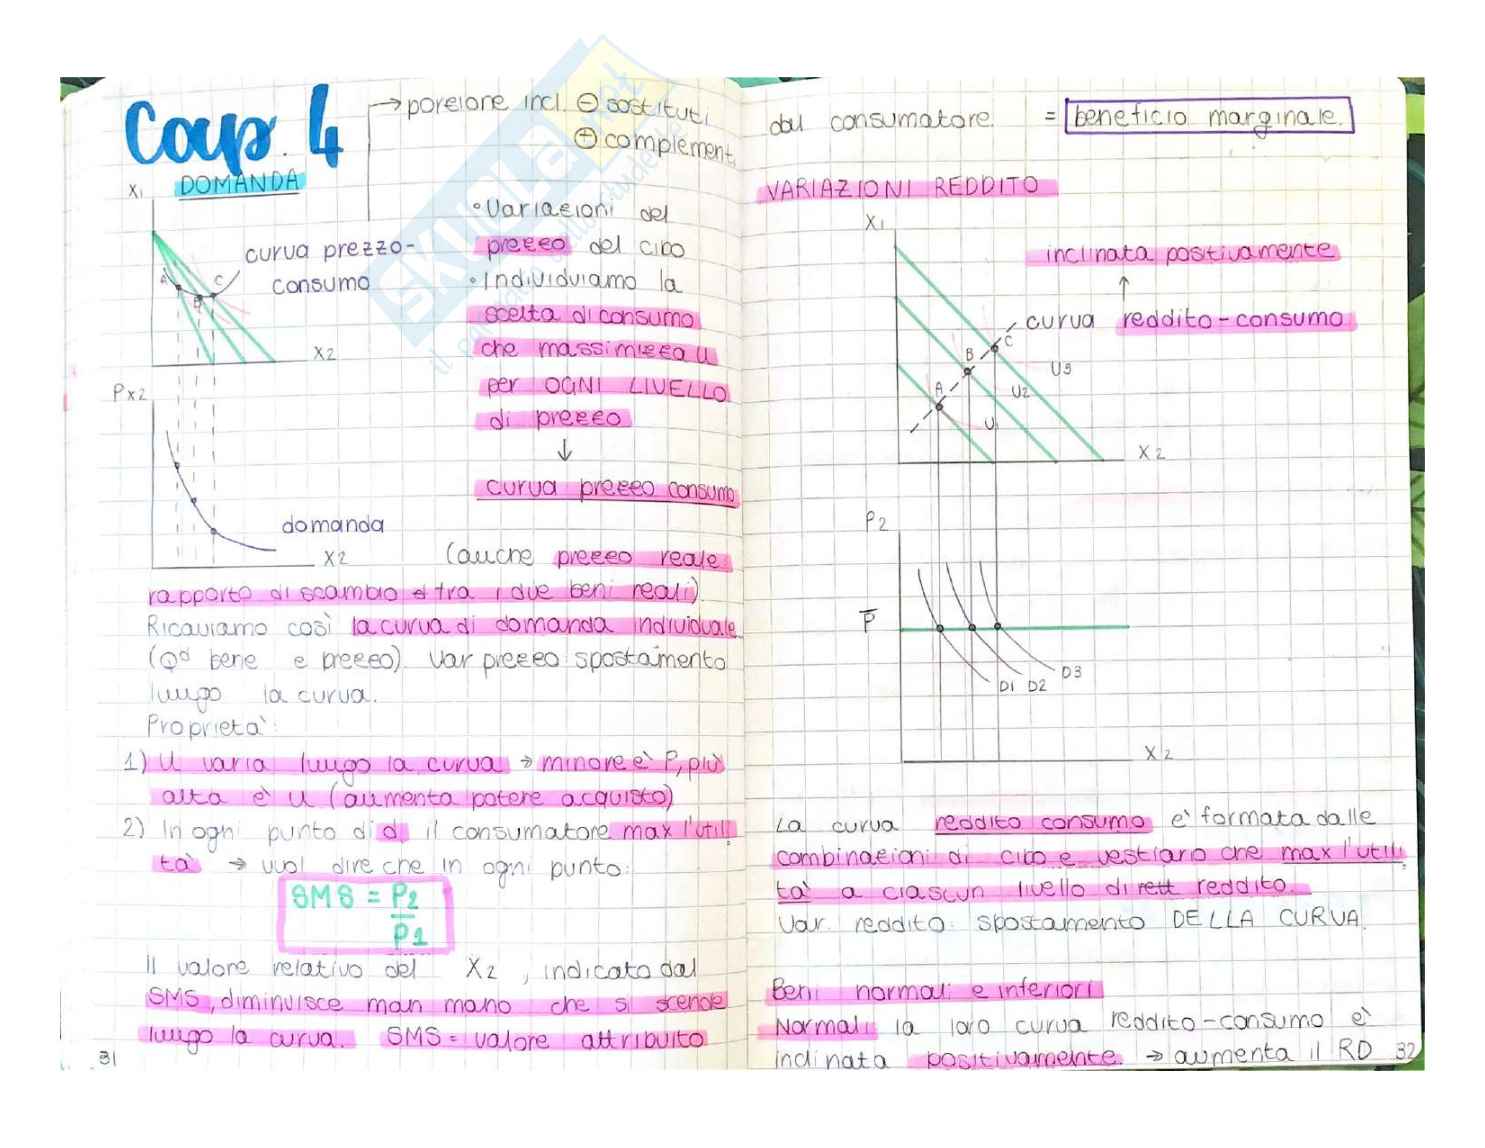 Cap. 4
→ porzione incl. ⊖ sostituti
⊕ complement.
DOMANDA
X1
curva prezzo-
consumo
A
B
C
X2
Px2
domanda
X2
• Variazioni del
prezzo del cibo
• Individuiamo la
scelta di consumo
che massimizza U
per OGNI LIVELLO
di prezzo
↓
curva prezzo consumo
(anche prezzo reale
rapporto di scambio tra i due beni reali)
Ricaviamo così la curva di domanda individuale
(Qd bene e prezzo). Var prezzo: spostamento
lungo la curva.
Proprietà:
1) U varia lungo la curva → minore è P, più
alta è U (aumenta potere acquisto)
2) In ogni punto di d il consumatore max l'utili
tà → vuol dire che in ogni punto:
SMS = P2
P1
Il valore relativo del X2, indicato dal
SMS, diminuisce man mano che si scende
lungo la curva. SMS = valore attribuito
31
dal consumatore = beneficio marginale.
VARIAZIONI REDDITO
X1
inclinata positivamente
↑
curva reddito-consumo
A
B
C
U3
U2
U
X2
P2
P̅
D1 D2 D3
X2
La curva reddito consumo è formata dalle
combinazioni di cibo e vestiario che max l'utili
tà a ciascun livello di rett reddito.
Var. reddito: spostamento DELLA CURVA.
Beni normali e inferiori
Normali: la loro curva reddito-consumo è
inclinata positivamente. → aumenta il RD
32
SKUOLA.net